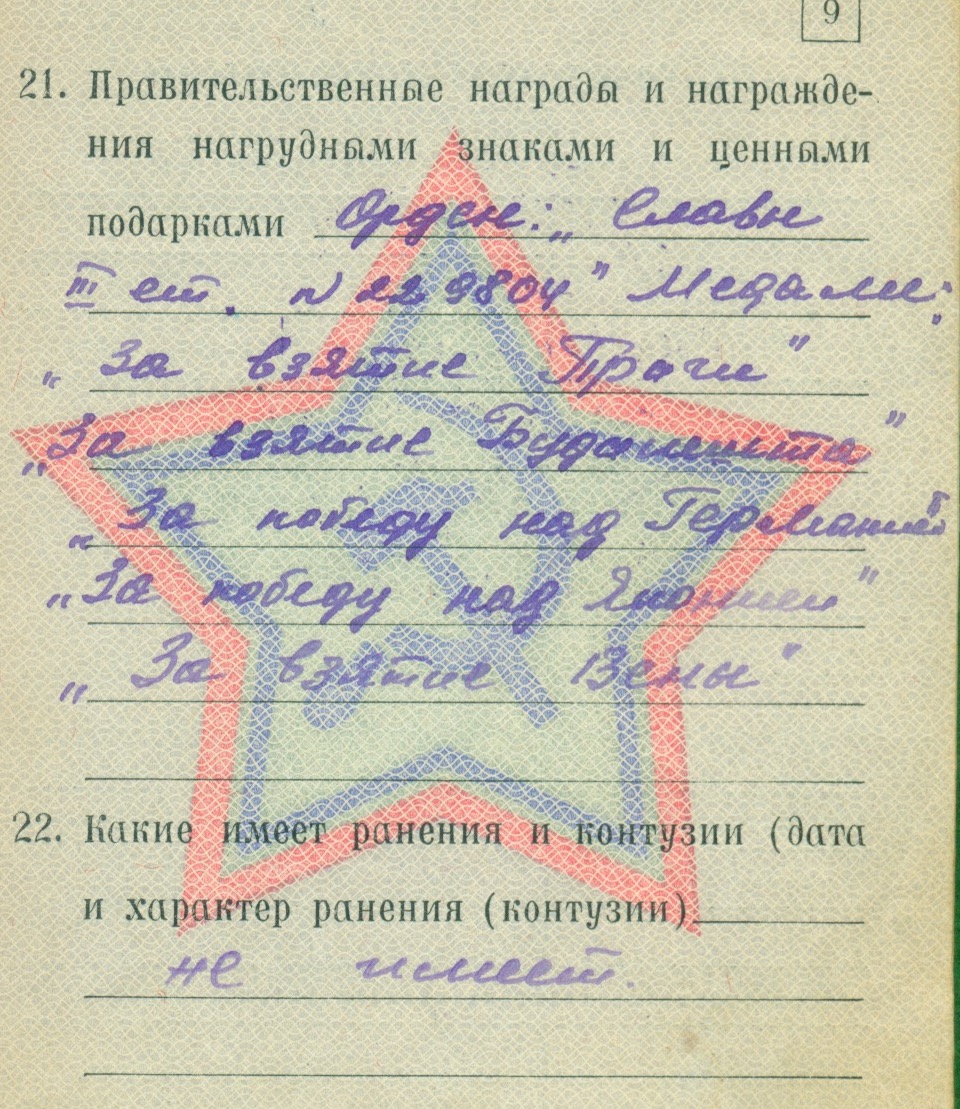 9
21. Правительственные награды и награжде-
ния нагрудными знаками и ценными
подарками Орден: „Славы
III ст. N 229804" Медали:
„За взятие Праги"
„За взятие Будапешта"
„За победу над Германией"
„За победу над Японией"
„За взятие Вены"
22. Какие имеет ранения и контузии (дата
и характер ранения (контузии)
не имеет.